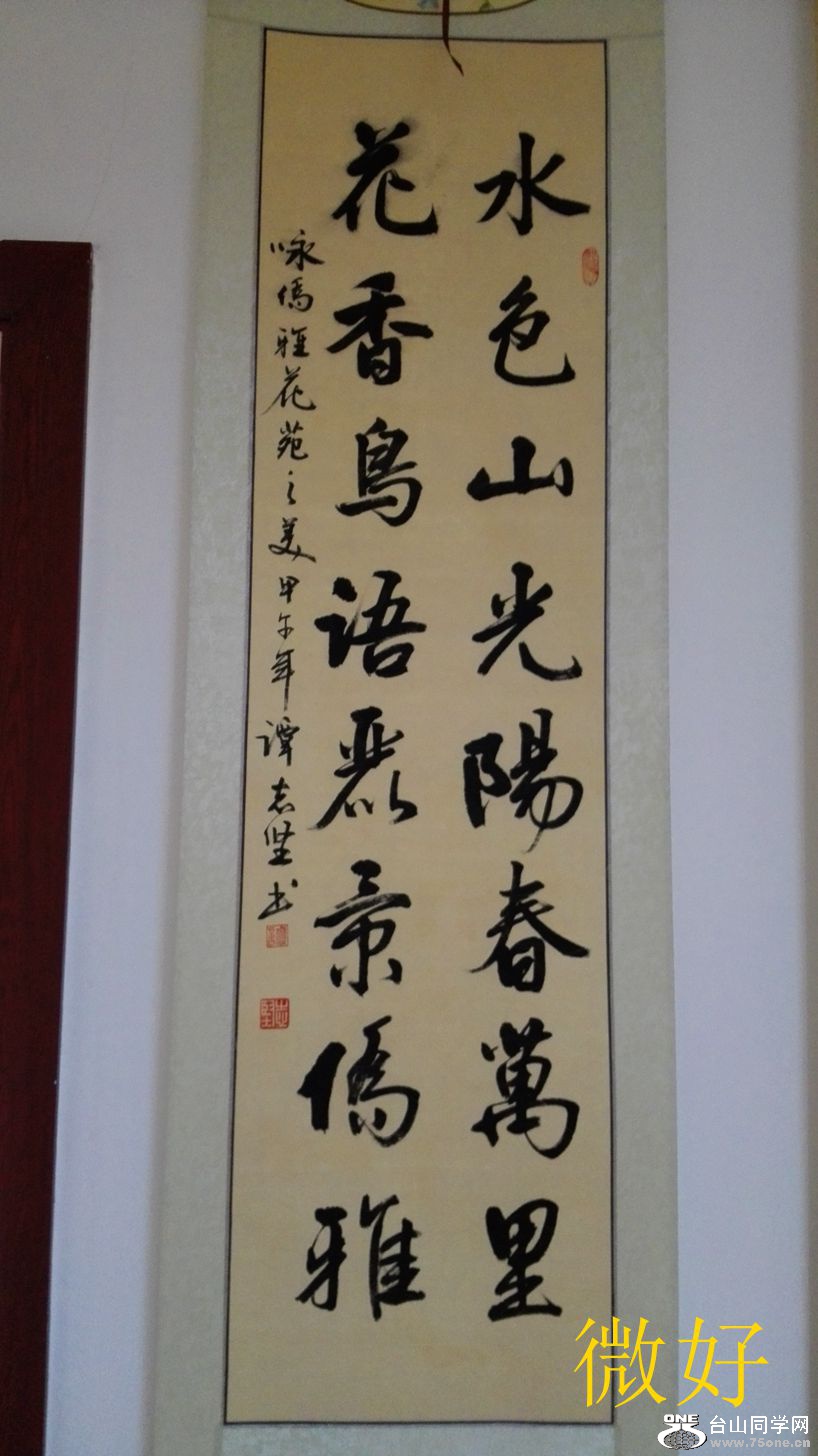 水色山光陽春萬里
花香鳥語麗景僑雅
咏僑雅花苑之美甲午年譚志坚书
志堅
微好
ONE
台山同学网
www.75one.cn